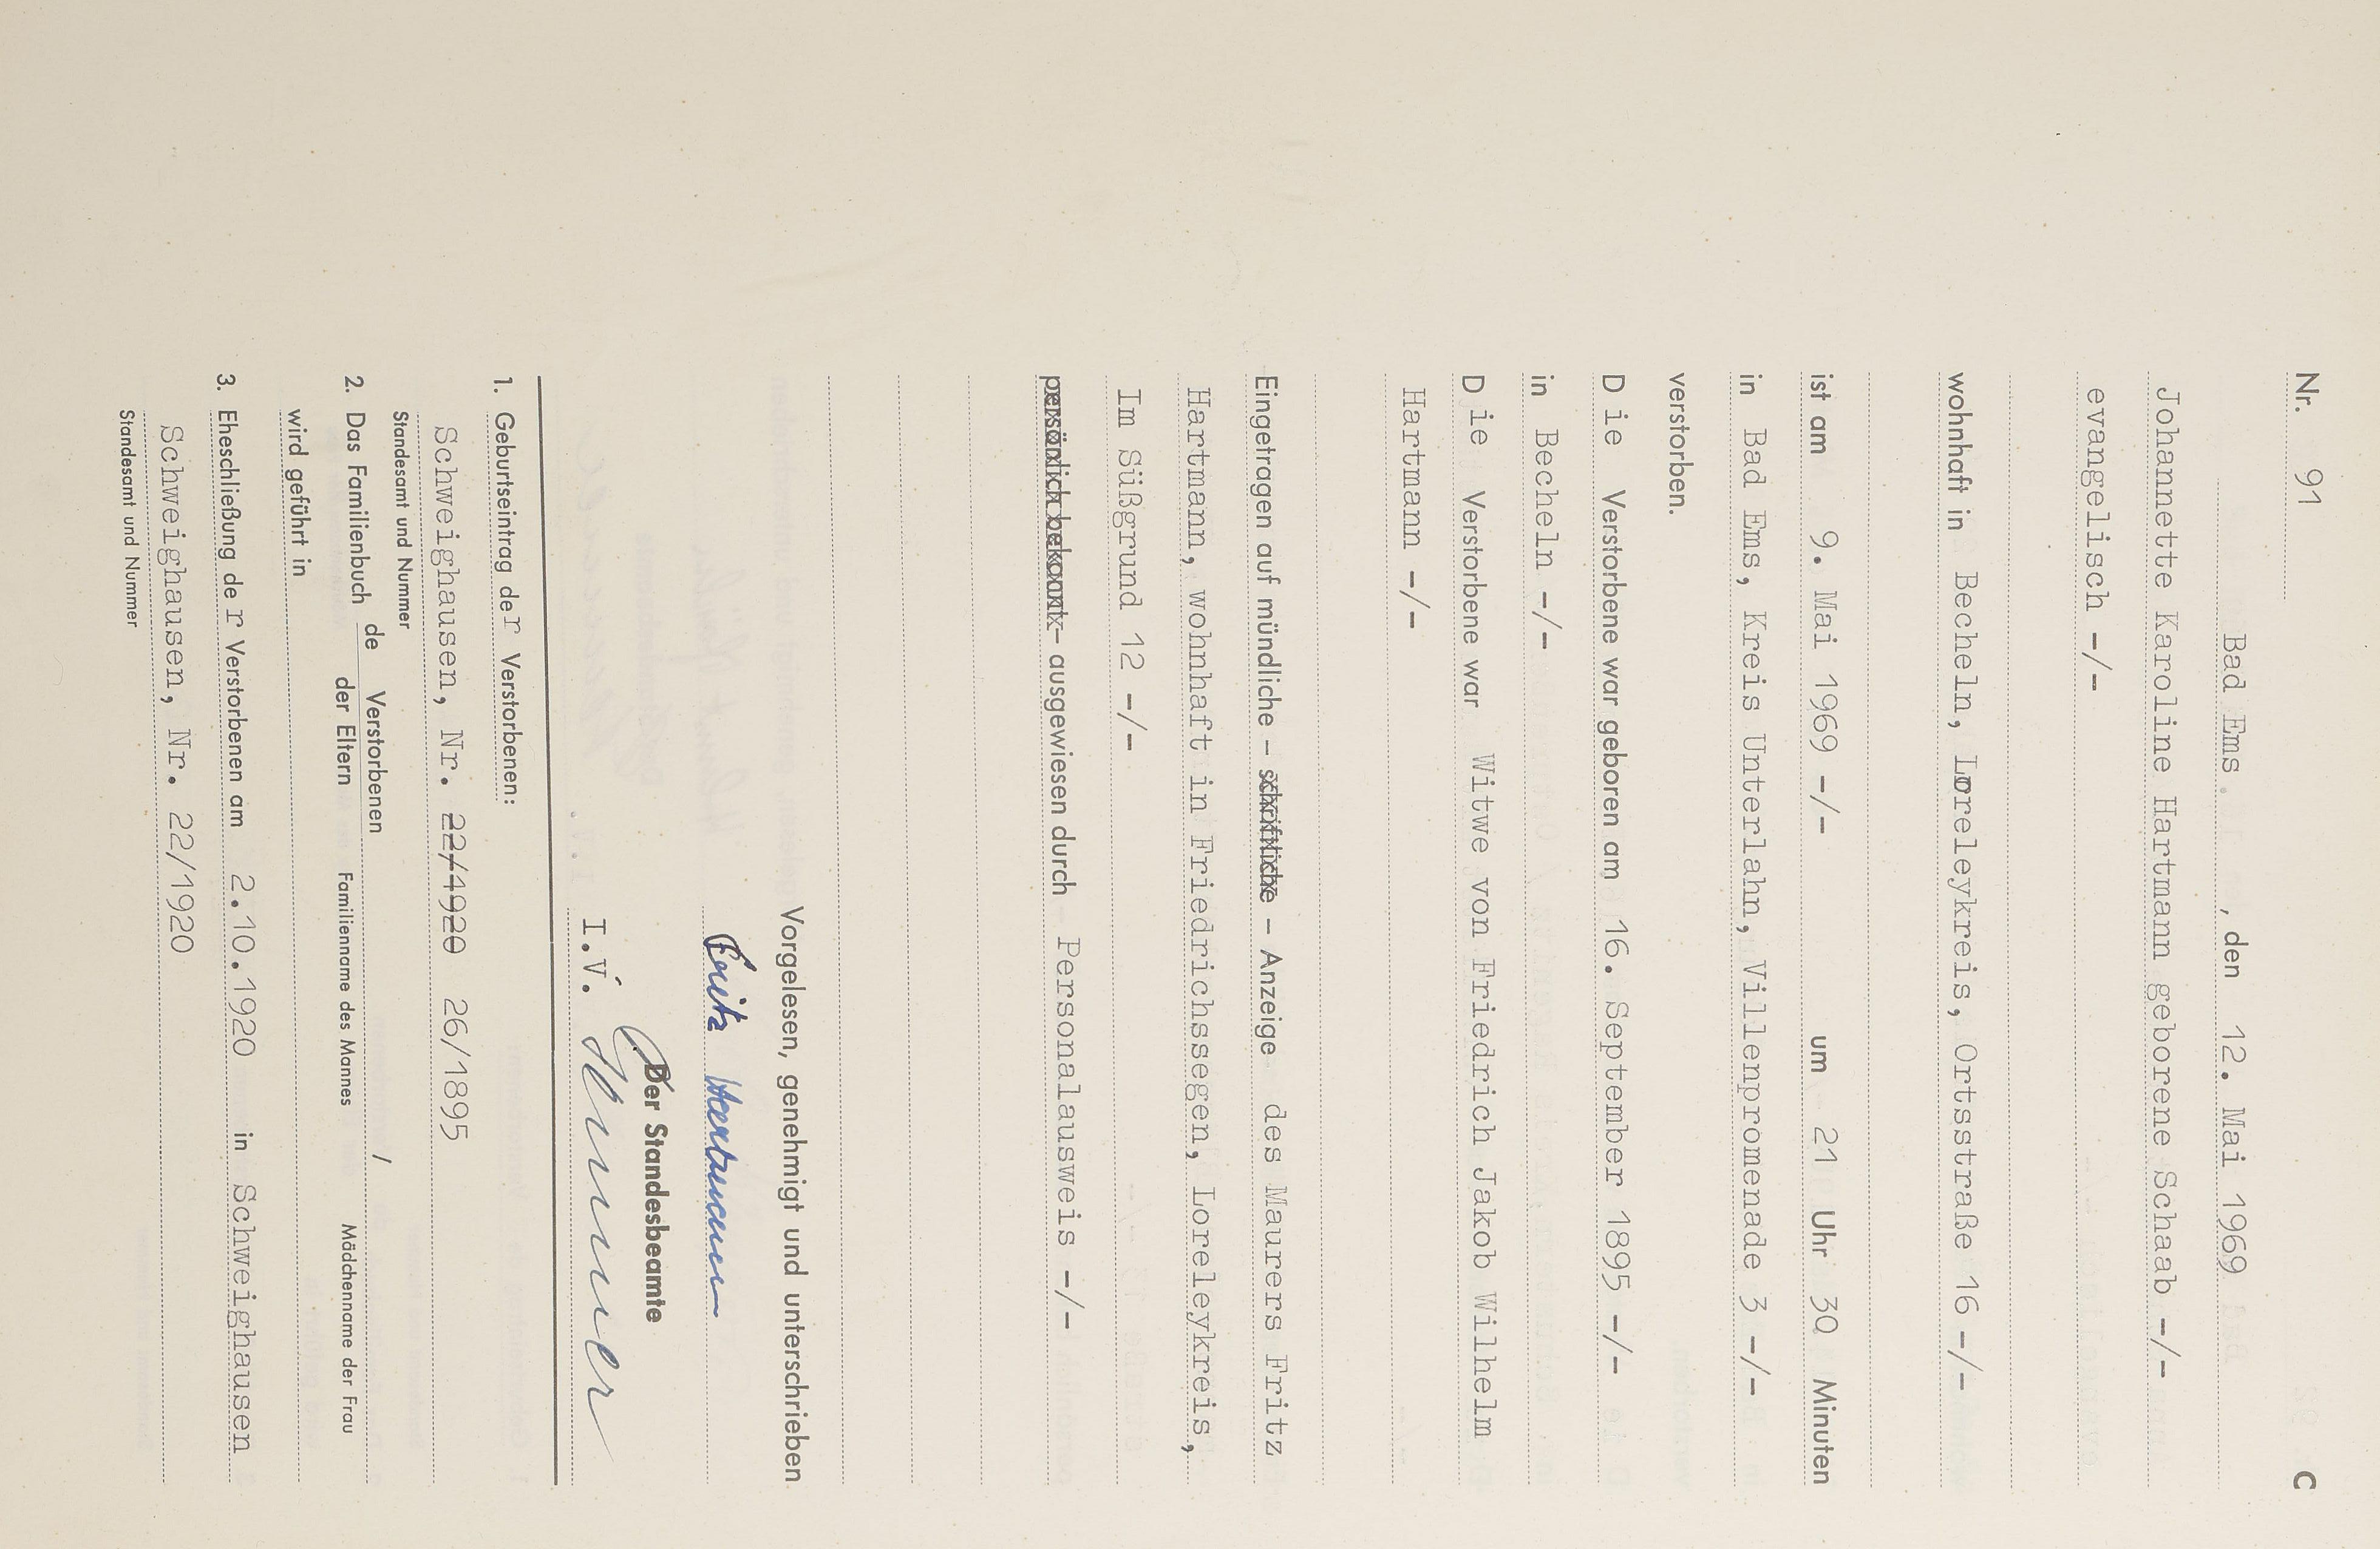 Nr. 91 C
Bad Ems, den 12. Mai 1969
Johannette Karoline Hartmann geborene Schaab -/-
evangelisch -/-
wohnhaft in Becheln, Loreleykreis, Ortsstraße 16 -/-
ist am 9. Mai 1969 -/- um 21 Uhr 30 Minuten
in Bad Ems, Kreis Unterlahn, Villenpromenade 3 -/-
verstorben.
D ie Verstorbene war geboren am 16. September 1895 -/-
in Becheln -/-
D ie Verstorbene war Witwe von Friedrich Jakob Wilhelm
Hartmann -/-
Eingetragen auf mündliche – schriftliche – Anzeige des Maurers Fritz
Hartmann, wohnhaft in Friedrichssegen, Loreleykreis,
Im Süßgrund 12 -/-
persönlich bekannt – ausgewiesen durch Personalausweis -/-
Vorgelesen, genehmigt und unterschrieben
Fritz Hartmann
Der Standesbeamte
I.V.
1. Geburtseintrag de r Verstorbenen:
Schweighausen, Nr. 22/1920 26/1895
Standesamt und Nummer
2. Das Familienbuch de Verstorbenen /
der Eltern Familienname des Mannes Mädchenname der Frau
wird geführt in
3. Eheschließung de r Verstorbenen am 2.10.1920 in Schweighausen
Schweighausen, Nr. 22/1920
Standesamt und Nummer